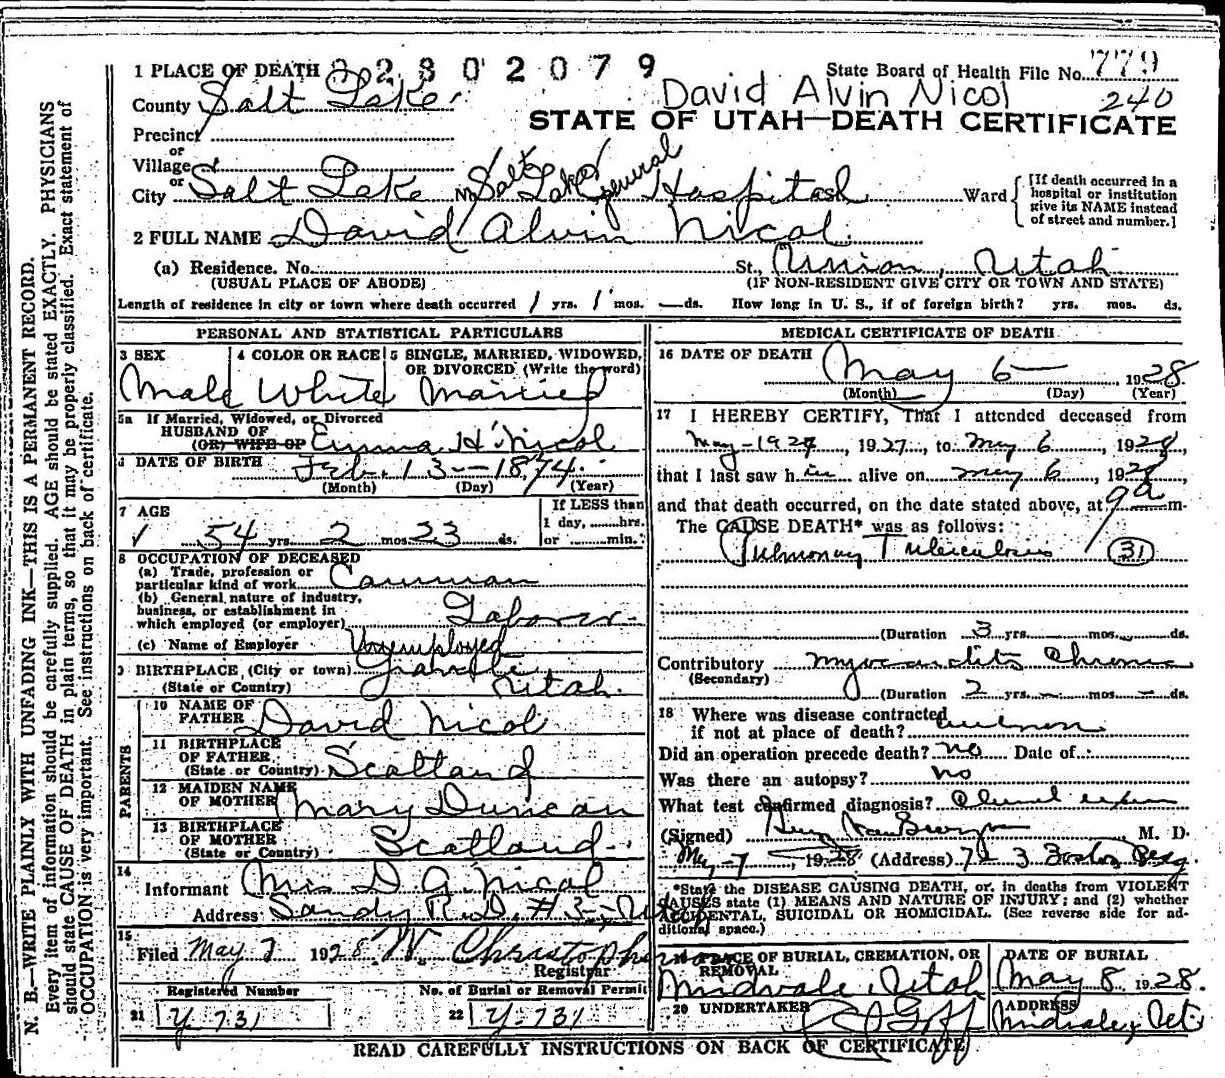 1 PLACE OF DEATH 2 2 8 0 2 0 7 9
State Board of Health File No. 779
County Salt Lake
David Alvin Nicol 240
STATE OF UTAH—DEATH CERTIFICATE
Precinct
or
Village
or
City Salt Lake No. Salt Lake General Hospital Ward
[If death occurred in a hospital or institution give its NAME instead of street and number.]
2 FULL NAME David Alvin Nicol
(a) Residence. No. St., Union, Utah
(USUAL PLACE OF ABODE) (IF NON-RESIDENT GIVE CITY OR TOWN AND STATE)
Length of residence in city or town where death occurred 1 yrs. 1 mos. — ds. How long in U. S., if of foreign birth? yrs. mos. ds.
PERSONAL AND STATISTICAL PARTICULARS
3 SEX 4 COLOR OR RACE 5 SINGLE, MARRIED, WIDOWED,
OR DIVORCED (Write the word)
Male White Married
5a If Married, Widowed, or Divorced
HUSBAND OF
(OR) WIFE OF Emma H. Nicol
DATE OF BIRTH Feb. 13—1874
(Month) (Day) (Year)
7 AGE If LESS than
1 day, hrs.
54 yrs. 2 mos. 23 ds. or min.
8 OCCUPATION OF DECEASED
(a) Trade, profession or
particular kind of work Common
(b) General nature of industry,
business, or establishment in
which employed (or employer) Laborer
(c) Name of Employer Unemployed
9 BIRTHPLACE (City or town) Granite
(State or Country) Utah.
PARENTS
10 NAME OF
FATHER David Nicol
11 BIRTHPLACE
OF FATHER
(State or Country) Scotland
12 MAIDEN NAME
OF MOTHER Mary Duncan
13 BIRTHPLACE
OF MOTHER
(State or Country) Scotland
14
Informant Mrs D. A. Nicol
Address Sandy R.D. #3, Utah
15
Filed May 7 1928 W. Christopherson
Registrar
Registered Number No. of Burial or Removal Permit
21 Y-731 22 Y-731
MEDICAL CERTIFICATE OF DEATH
16 DATE OF DEATH
May 6— 1928
(Month) (Day) (Year)
17 I HEREBY CERTIFY, That I attended deceased from
May-1927, 1927, to May 6, 1928,
that I last saw him alive on May 6, 1928,
and that death occurred, on the date stated above, at 9a m.
The CAUSE DEATH* was as follows:
Pulmonary Tuberculosis (31)
(Duration 3 yrs. mos. ds.
Contributory Myocarditis Chronic
(Secondary)
(Duration 2 yrs. — mos. — ds.
18 Where was disease contracted
if not at place of death? unknown
Did an operation precede death? no Date of
Was there an autopsy? no
What test confirmed diagnosis?
(Signed) M. D.
May 7, 1928 (Address) 723 Boston Bldg.
*State the DISEASE CAUSING DEATH, or, in deaths from VIOLENT
CAUSES state (1) MEANS AND NATURE OF INJURY; and (2) whether
ACCIDENTAL, SUICIDAL OR HOMICIDAL. (See reverse side for ad-
ditional space.)
PLACE OF BURIAL, CREMATION, OR
REMOVAL
Midvale, Utah
DATE OF BURIAL
May 8 1928.
20 UNDERTAKER Goff
ADDRESS
Midvale, Ut.
READ CAREFULLY INSTRUCTIONS ON BACK OF CERTIFICATE
N. B.—WRITE PLAINLY WITH UNFADING INK—THIS IS A PERMANENT RECORD.
Every item of information should be carefully supplied. AGE should be stated EXACTLY. PHYSICIANS
should state CAUSE OF DEATH in plain terms, so that it may be properly classified. Exact statement of
OCCUPATION is very important. See instructions on back of certificate.